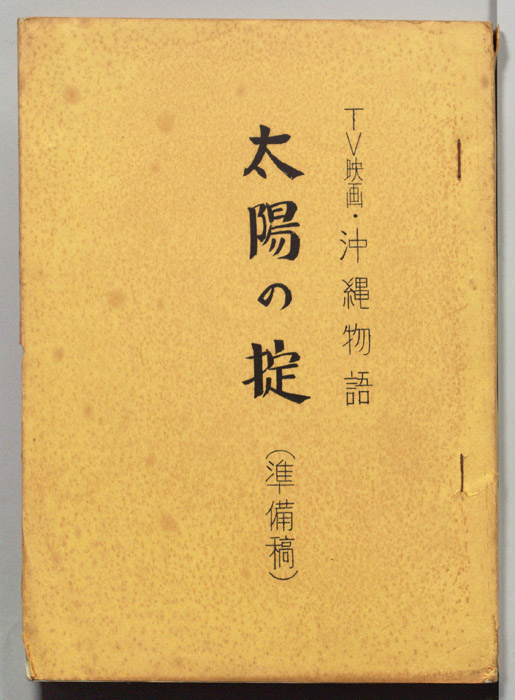 TV映画・沖縄物語
太陽の掟
(準備稿)